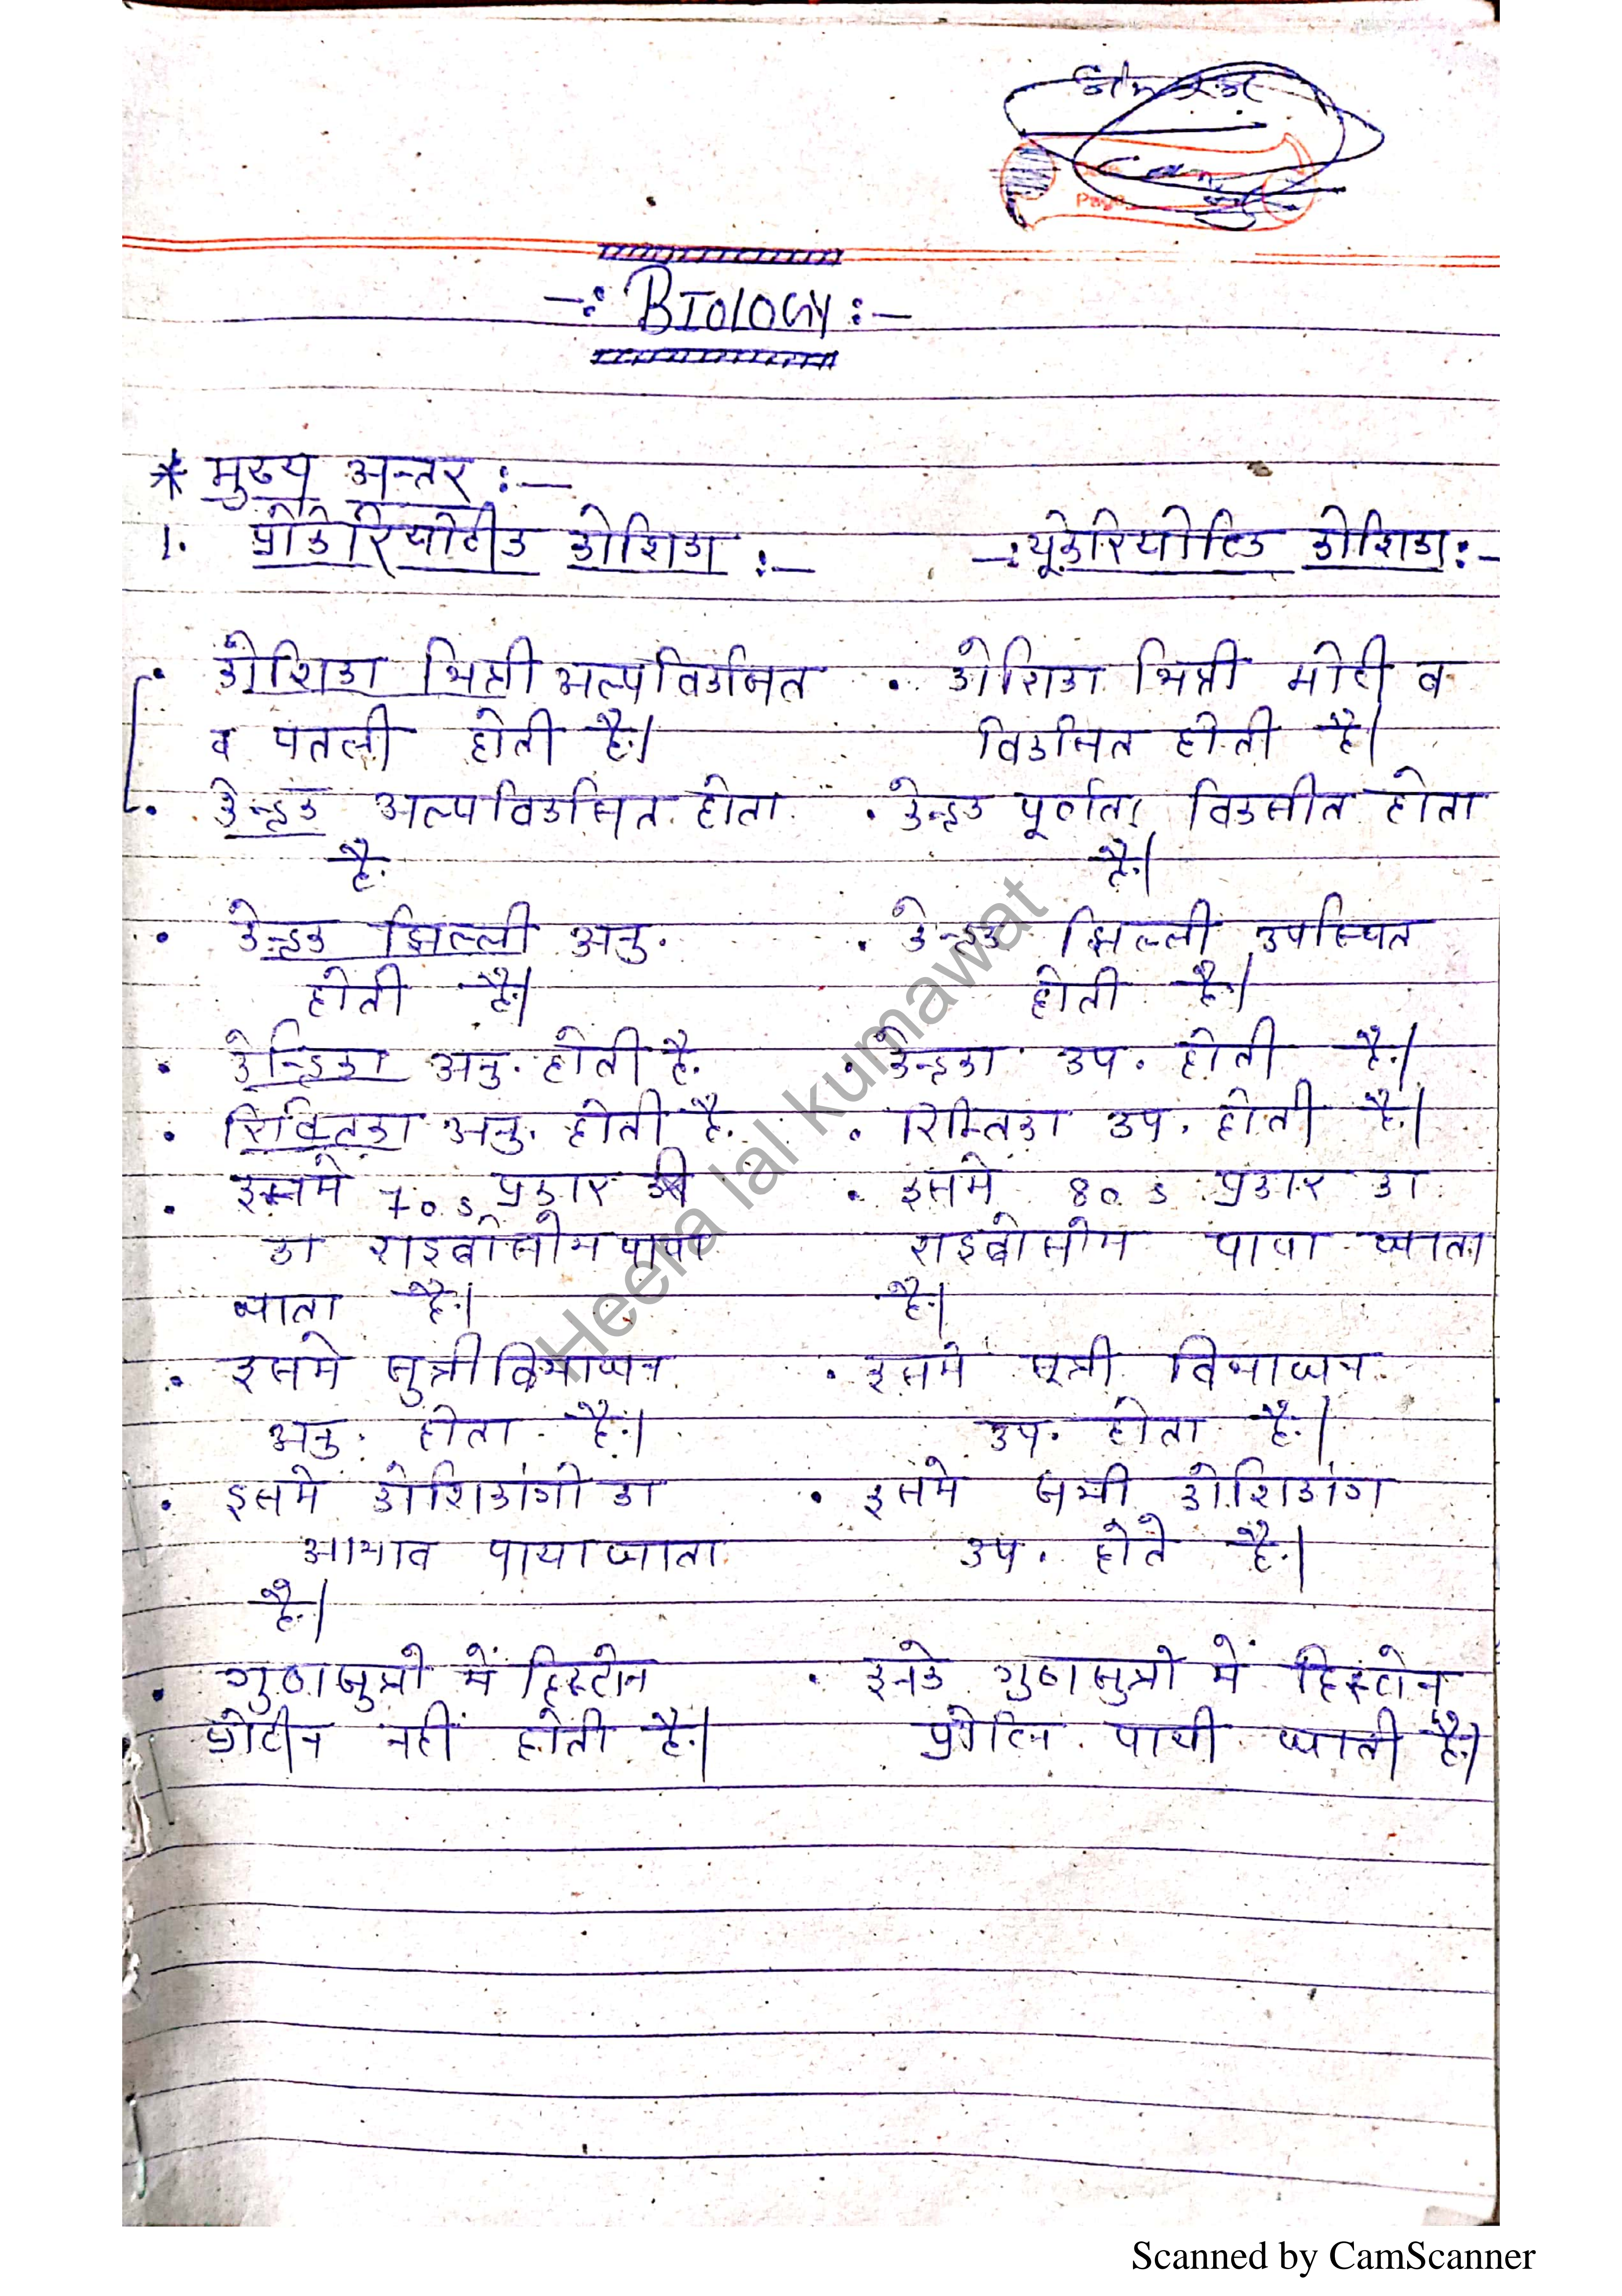 -:BIOLOGY:-
* मुख्य अन्तर :-
1. प्रोकेरियोटीक कोशिका :-
-: यूकेरियोटिक कोशिका :-
. कोशिका भित्ती अल्पविकसित
व पतली होती है।
. कोशिका भित्ती मोटी व
विकसित होती है।
. केन्द्रक अल्पविकसित होता
है.
. केन्द्रक पूर्णता विकसीत होता
है।
. केन्द्रक झिल्ली अनु.
होती है।
. केन्द्रक झिल्ली उपस्थित
होती है।
. केन्द्रिका अनु. होती है.
. केन्द्रका उप. होती है।
. रिक्तिका अनु. होती है.
. रिक्तिका उप. होती है।
. इसमे 70 s प्रकार
का राइबोसोम पाया
जाता है।
. इसमे 80 s प्रकार का
राइबोसोम पाया जाता
है।
. इसमे सुत्री विभाजन
अनु. होता है।
. इसमे सूत्री विभाजन
उप. होता है।
. इसमे कोशिकांगो का
आभाव पाया जाता
है।
. इसमे सभी कोशिकांग
उप. होते है।
. गुणसुत्रो में हिस्टोन
प्रोटीन नहीं होती है।
. इनके गुणसुत्रो में हिस्टोन
प्रोटिन पायी जाती है।
Heera lal kumawat
Scanned by CamScanner